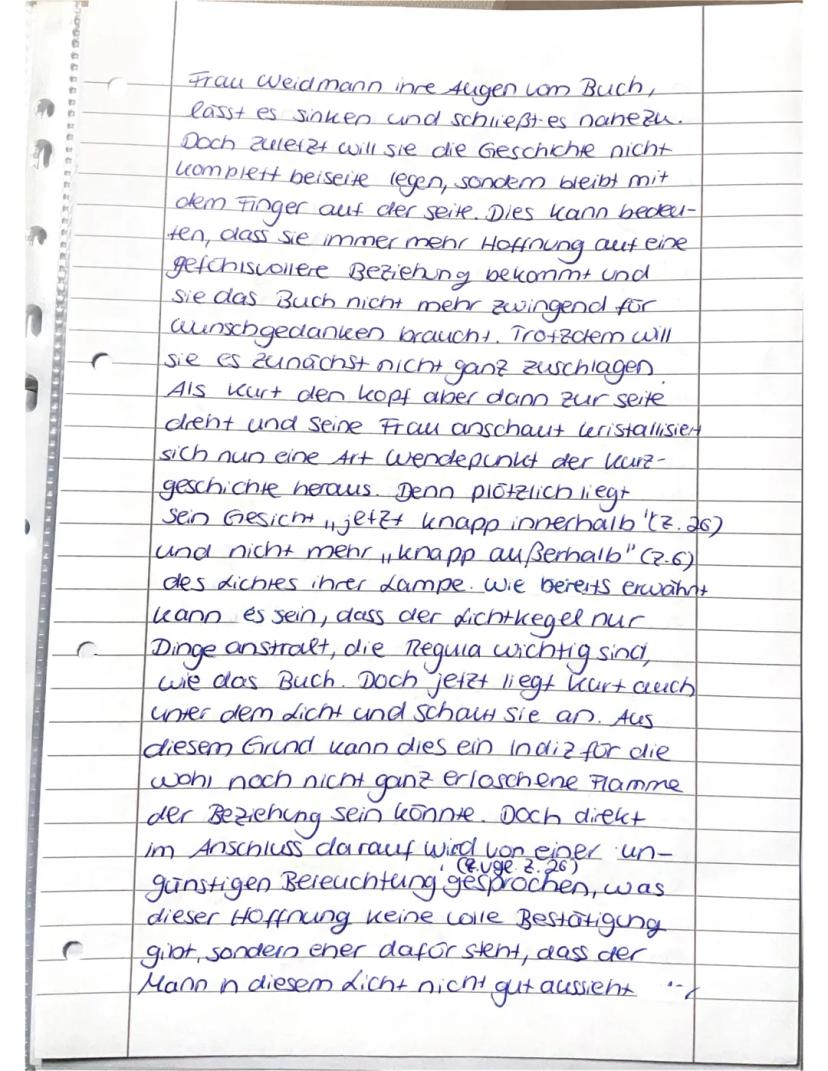 Frau Weidmann ihre Augen vom Buch,
lässt es sinken und schließt es nahezu.
Doch zuletzt will sie die Geschichte nicht
komplett beiseite legen, sondern bleibt mit
dem Finger auf der Seite. Dies kann bedeu-
ten, dass sie immer mehr Hoffnung auf eine
gefühlsvollere Beziehung bekommt und
sie das Buch nicht mehr zwingend für
Wunschgedanken braucht. Trotzdem will
sie es zunächst nicht ganz zuschlagen.
Als Kurt den Kopf aber dann zur Seite
dreht und seine Frau anschaut kristallisiert
sich nun eine Art Wendepunkt der Kurz-
geschichte heraus. Denn plötzlich liegt
sein Gesicht „jetzt knapp innerhalb" (Z. 26)
und nicht mehr „knapp außerhalb" (Z. 6)
des Lichtes ihrer Lampe. Wie bereits erwähnt
kann es sein, dass der Lichtkegel nur
Dinge anstralt, die Regula wichtig sind,
wie das Buch. Doch jetzt liegt Kurt auch
unter dem Licht und schaut sie an. Aus
diesem Grund kann dies ein Indiz für die
wohl noch nicht ganz erloschene Flamme
der Beziehung sein könnte. Doch direkt
im Anschluss darauf wird von einer un-
(vgl. Z. 26)
günstigen Beleuchtung gesprochen, was
dieser Hoffnung keine volle Bestätigung
gibt, sondern eher dafür steht, dass der
Mann n diesem Licht nicht gut aussieht